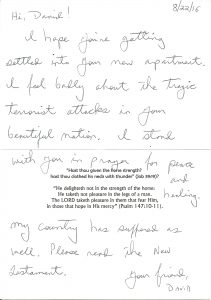 8/22/16
Hi, Daniel!
I hope you're getting
settled into your new apartment.
I feel badly about the tragic
terrorist attacks in your
beautiful nation. I stand
with you in prayer for peace
and
"Hast thou given the horse strength?
hast thou clothed his neck with thunder" (Job 39:19)?
healing.
"He delighteth not in the strength of the horse:
He taketh not pleasure in the legs of a man.
The LORD taketh pleasure in them that fear Him,
in those that hope in His mercy" (Psalm 147:10-11).
My country has suffered as
well. Please read the New
Testament.
Your friend,
David